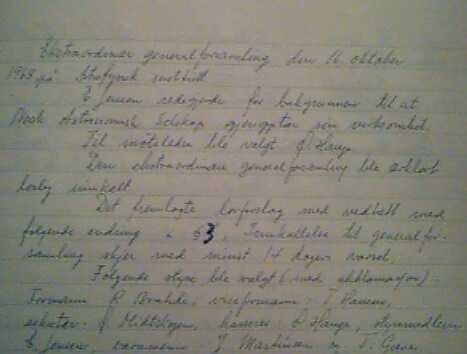 Ekstraordinær generalforsamling den 16. oktober
1968 på Astrofysisk institutt
E. Jensen redegjorde for bakgrunnen til at
Norsk Astronomisk Selskap gjenopptar sin virksomhet.
Til møteleder ble valgt Ø. Hauge
Den ekstraordinære generalforsamling ble erklært
lovlig innkalt.
Det fremlagte lovforslag med vedtatt med
følgende endring i § 3. Innkallelse til generalfor-
samling skjer med minst 14 dagers varsel.
Følgende styre ble valgt (med akklamasjon):
Formann R. Brahde, viseformann: T. Hansen,
sekretær: Midtskogen, kasserer: Ø. Hauge, styremedlem
E. Jensen, varamenn: J. Martinsen og